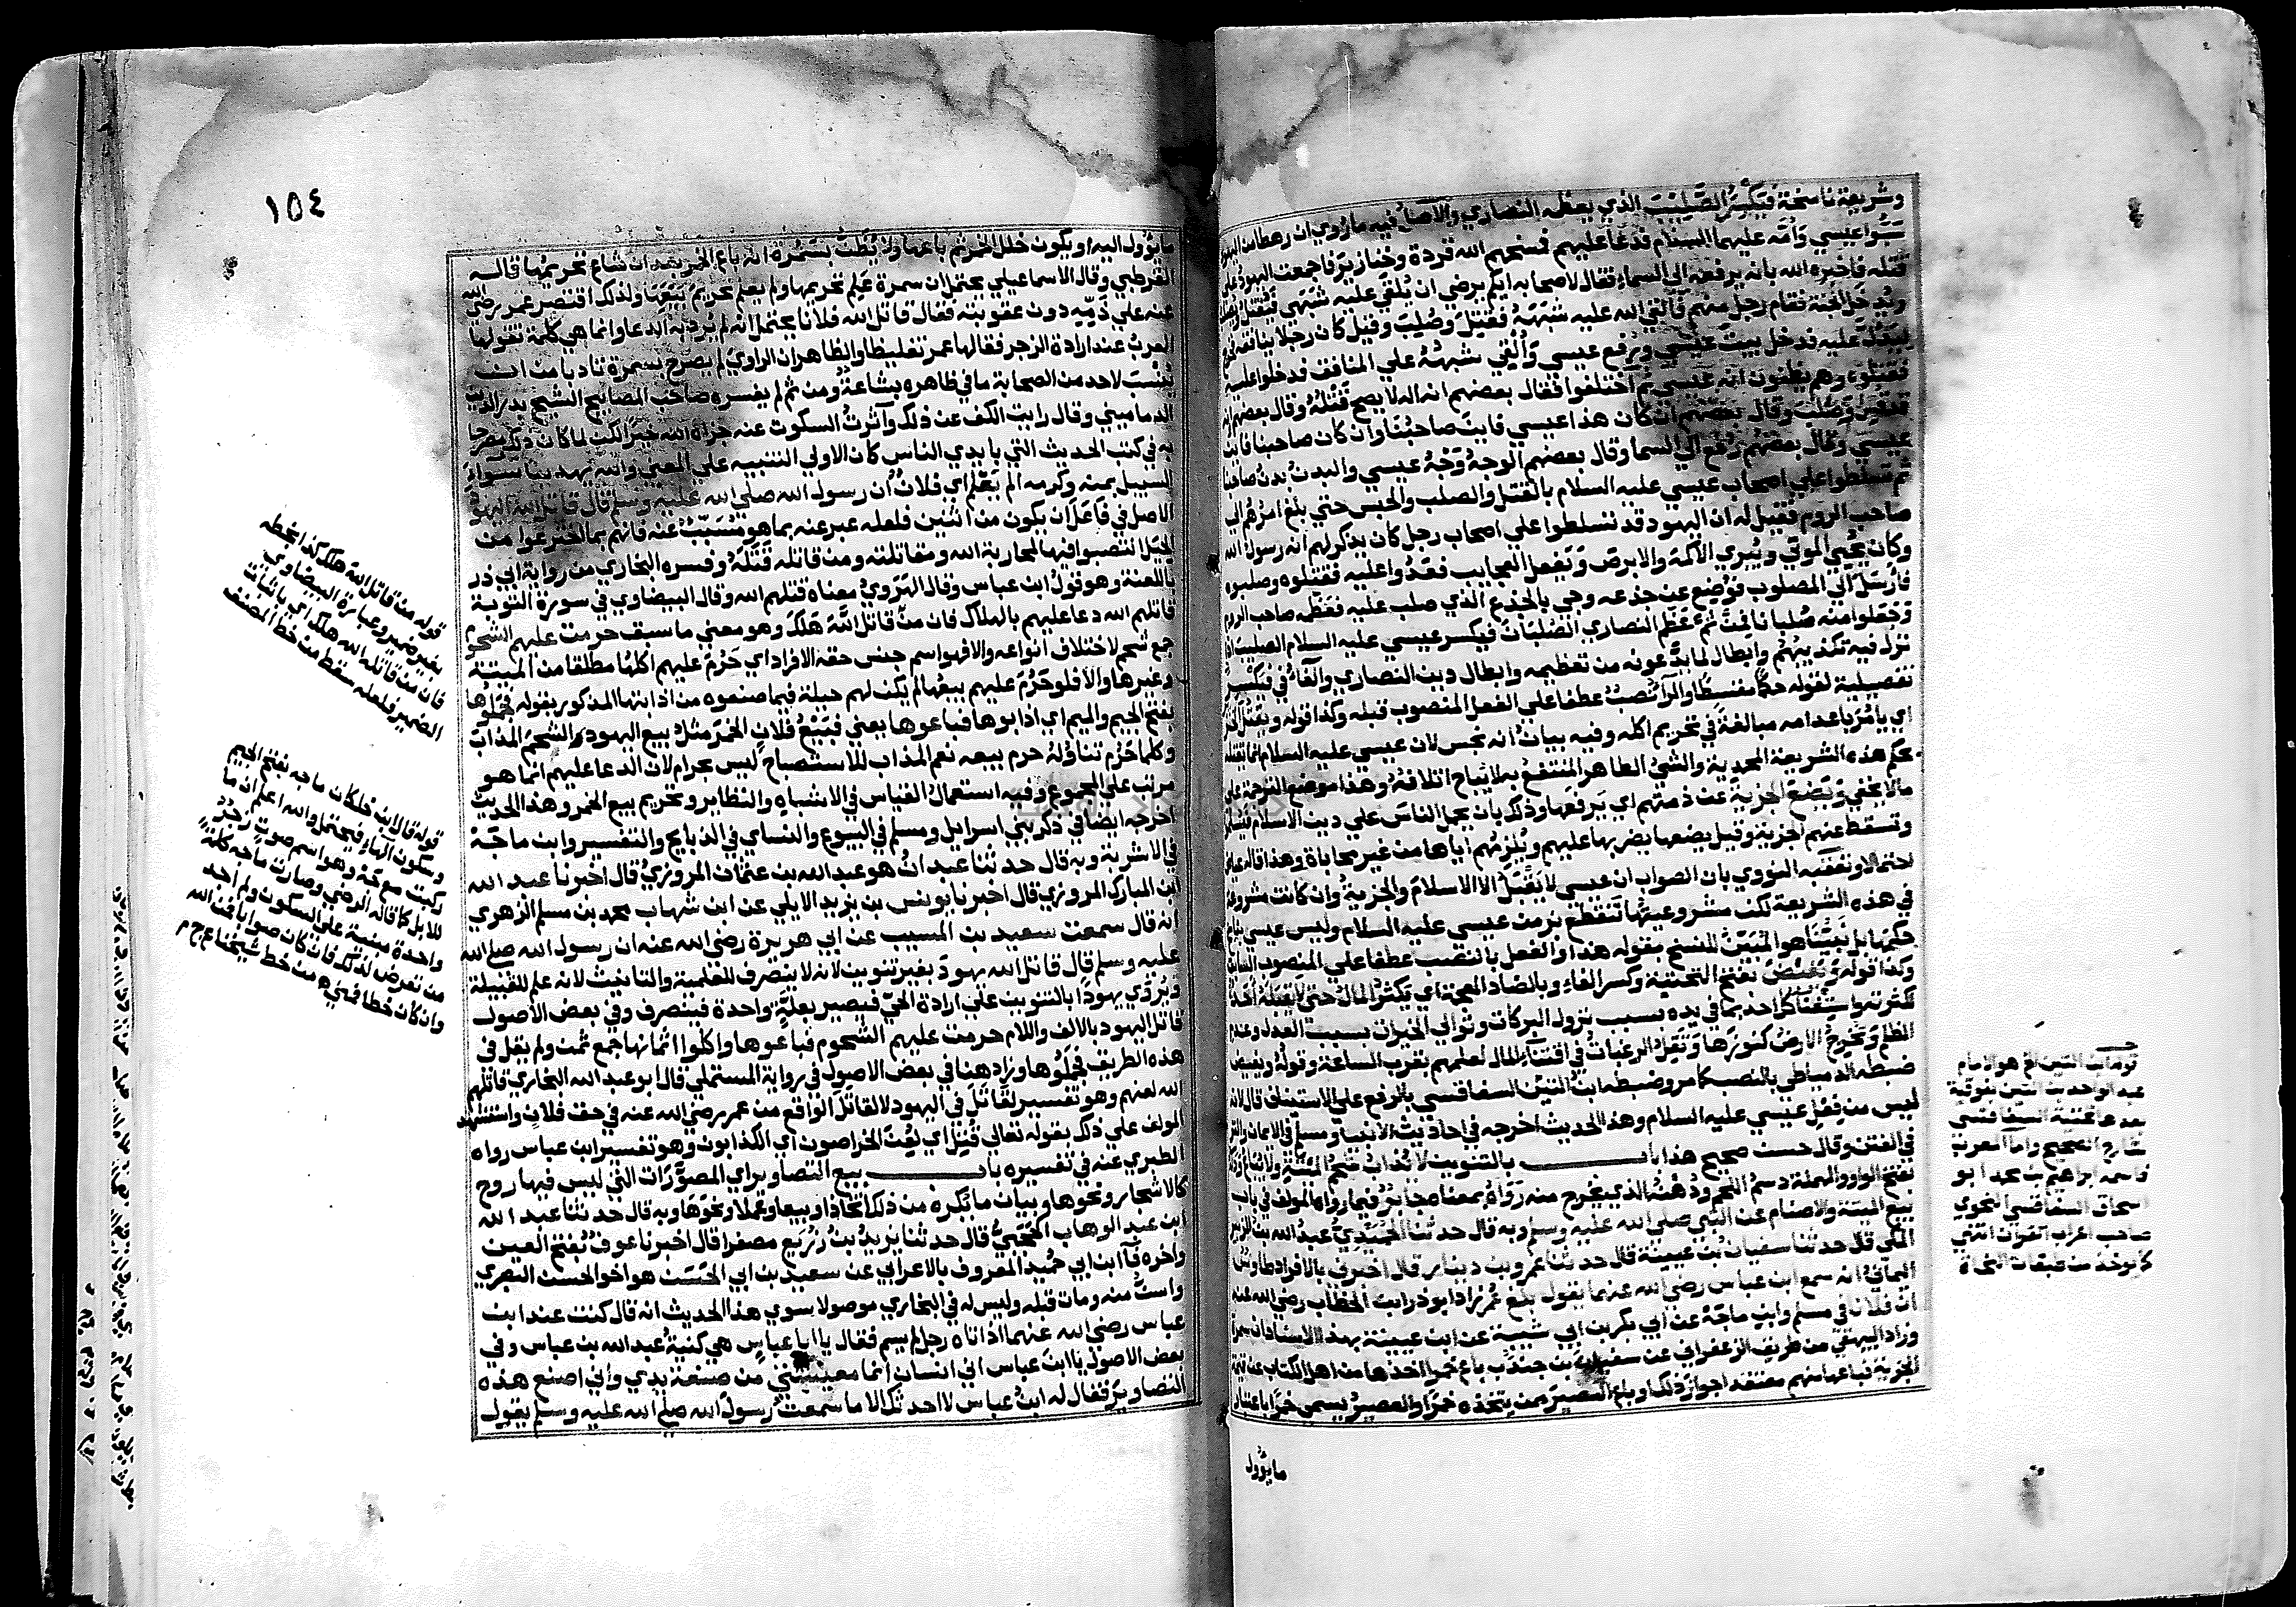 وشريعة ناسخة فيكسر الصليب الذي يعظمه النصاري والأصل فيه ما روي ان رهطا من اليهود
سبوا عيسي وأمه عليهما السلام فدعا عليهم فمسخهم الله قردة وخنازير فاجمعت اليهود على
قتله فاخبره الله بانه يرفعه الي السماء فقال لاصحابه ايكم يرضي ان يلقي عليه شبهي فيقتل ويصلب
ويدخل الجنة فقام رجل منهم فالقي الله عليه شبهه فقتل وصلب وقيل كان رجلا ينافقه فخرج
ليدل عليه فدخل بيت عيسي ورفع عيسي وألقي شبهه علي المنافق فدخلوا عليه
فقتلوه وهم يظنون انه عيسي ثم اختلفوا فقال بعضهم انه اله لا يصح قتله وقال بعضهم انه
قد قتل وصلب وقال بعضهم ان كان هذا عيسي فاين صاحبنا وان كان صاحبنا فاين
عيسي وقال بعضهم رفع الي السما وقال بعضهم الوجه وجه عيسي والبدن بدن صاحبنا
ثم تسلطوا علي اصحاب عيسي عليه السلام بالقتل والصلب والحبس حتي بلغ امرهم الى
صاحب الروم فقيل له ان اليهود قد تسلطوا علي اصحاب رجل كان يذكر لهم انه رسول الله
وكان يحيي الموتي ويبري الاكمه والابرص ويفعل العجايب فعدوا عليه فقتلوه وصلبوه
فارسل الي المصلوب فوضع عن جذعه وجي بالجذع الذي صلب عليه فعظمه صاحب الروم
وجعلوا منه صلبانا فمن ثم عظم النصاري الصلبان فيكسر عيسي عليه السلام الصليب اذا
نزل فيه تكذيبهم وابطال لما يدعونه من تعظيمه وابطال دين النصاري والفاء في فيكسر
تفصيلية لقوله حكما مقسطا والراء نصب عطفا علي الفعل المنصوب قبله وكذا قوله ويقتل الخنزير
اي يامر باعدامه مبالغة في تحريم اكله وفيه بيان انه نجس لان عيسي عليه السلام انما يقتله
بحكم هذه الشريعة المحمدية والشي الطاهر المنتفع به لا يباح اتلافه وهذا موضع الترجمة على
مالا يخفي ويضع الجزية عن ذمتهم اي يرفعها وذلك بان يحمل الناس علي دين الاسلام فيسلموا
وتسقط عنهم الجزية وقيل يضعها يضربها عليهم ويلزمهم اياها من غير محاباة وهذا قاله عياض
احتمالا وتعقبه النووي بان الصواب ان عيسي لا يقبل الا الاسلام والجزية وان كانت مشروعة
في هذه الشريعة لكن مشروعيتها تنقطع بزمن عيسي عليه السلام وليس عيسي بناسخ
حكمها بل نبينا هو المبين للنسخ بقوله هذا والفعل بالنصب عطفا علي المنصوب السابق
وكذا قوله ويفيض بفتح التحتية وكسر الفاء وبالضاد المعجمة اي يكثر المال حتي لا يقبله احد
لكثرته واستغنا كل احد بما في يده بسبب نزول البركات وتوالي الخيرات بسبب العدل وعدم
الظلم وتخرج الارض كنوزها وتقل الرغبات في اقتناء المال لعلمهم بقرب الساعة وقوله ويفيض
ضبطه الدمياطي بالنصب كما مر وضبطه ابن التين السفاقسي بالرفع علي الاستئناف قال لانه
ليس من فعل عيسي عليه السلام وهذا الحديث اخرجه في احاديث الانبيا ومسلم في الايمان والترمذي
في الفتن وقال حسن صحيح هذا باب بالتنوين لا يذاب شحم الميتة ولا يباع ودكه
بفتح الواو والمهملة دسم اللحم ودهنه الذي يخرج منه رواه بمعناه جابر فيما رواه المولف في باب
بيع الميتة والاصنام عن النبي صلى الله عليه وسلم وبه قال حدثنا الحميدي عبد الله بن الزبير
المكي قال حدثنا سفيان بن عيينة قال حدثنا عمرو بن دينار قال اخبرني بالافراد طاوس
اليماني انه سمع ابن عباس رضي الله عنهما يقول بلغ عمر زاد ابو ذر ابن الخطاب رضي الله عنه
ان فلانا في مسلم وابن ماجة عن ابي بكر بن ابي شيبة عن ابن عيينة بهذا الاسناد ان سمرة
وزاد البيهقي من طريق الزعفراني عن سفيان بن جندب باع خمرا اخذها من اهل الكتاب عن قيمة
الجزية فباعها منهم معتقدا جواز ذلك او باع العصير ممن يتخذه خمرا والعصير يسمي خمرا باعتبار
ما يؤول
توله ابن التين الخ هو الامام
عبد الواحد بن التين بفوقية
بعدها تحتية السفاقسي
شارح الصحيح واما المعرب
فاسمه ابراهيم بن محمد ابو
اسحاق السفاقسي النحوي
صاحب اعراب القران انتهي
كما يوخذ من طبقات النحاة
١٥٤
ما يؤول اليه او يكون خلل الخمر ثم باعها ولا يظن بسمرة انه باع الخمر بعد ان شاع تحريمها قاله
القرطبي وقال الاسماعيلي يحتمل ان سمرة علم تحريمها ولم يعلم تحريم بيعها ولذلك اقتصر عمر رضي الله
عنه علي ذمه دون عقوبته فقال قاتل الله فلانا يحتمل انه لم يرد به الدعا وانما هي كلمة تقولها
العرب عند ارادة الزجر فقالها عمر تغليظا والظاهر ان الراوي لم يصرح بسمرة تادبا من ان
ينسب لاحد من الصحابة ما في ظاهره بشاعة ومن ثم لم يفسره صاحب المصابيح الشيخ بدر الدين
الدماميني وقال رايت الكف عن ذلك وآثرت السكوت عنه جزاه الله خيرا لكن لما كان ذلك مصرحا
به في كتب الحديث التي بايدي الناس كان الاولي التنبيه علي المعني والله يهدينا سواء
السبيل بمنه وكرمه الم يعلم اي فلان ان رسول الله صلى الله عليه وسلم قال قاتل الله اليهود
الاصل في فاعل ان يكون من اثنين فلعله عبر عنه بما هو مسبب عنه فانهم بما اخترعوا من
الحيل انتصبوا فيها لمحاربة الله ومقاتلته ومن قاتله قتله وفسره البخاري من رواية ابي ذر
باللعنة وهو قول ابن عباس وقال الهروي معناه قتلهم الله وقال البيضاوي في سورة التوبة
قاتلهم الله دعا عليهم بالهلاك فان من قاتل الله هلك وهو معني ما سبق حرمت عليهم الشحوم
جمع شحم لاختلاف انواعه والا فهو اسم جنس حقه الافراد اي حرم عليهم اكلها مطلقا من الميتة
وغيرها والا فلو حرم عليهم بيعها لم يكن لهم حيلة فيما صنعوه من اذابتها المذكور بقوله فجملوها
بفتح الجيم والميم اي اذابوها فباعوها يعني فبيع فلان الخمر مثل بيع اليهود الشحم المذاب
وكلما حرم تناوله حرم بيعه نعم المذاب للاستصباح ليس بحرام لان الدعا عليهم انما هو
مرتب علي المجموع وفيه استعمال القياس في الاشباه والنظاير وتحريم بيع الخمر وهذا الحديث
اخرجه ايضا في ذكر بني اسرايل ومسلم في البيوع والنساي في الذبايح والتفسير وابن ماجة
في الاشربة وبه قال حدثنا عبدان هو عبد الله بن عثمان المروزي قال اخبرنا عبد الله
ابن المبارك المروزي قال اخبرنا يونس بن يزيد الايلي عن ابن شهاب محمد بن مسلم الزهري
انه قال سمعت سعيد بن المسيب عن ابي هريرة رضي الله عنه ان رسول الله صلى الله
عليه وسلم قال قاتل الله يهود بغير تنوين لانه لا ينصرف للعلمية والتانيث لانه علم للقبيلة
ويروي يهودا بالتنوين علي ارادة الحي فيصير بعلة واحدة فينصرف وفي بعض الاصول
قاتل اليهود بالالف واللام حرمت عليهم الشحوم فباعوها واكلوا اثمانها جمع ثمن ولم يقل في
هذه الطريق فجملوها وزاد هنا في بعض الاصول في رواية المستملي قال ابو عبد الله البخاري قاتلهم
الله لعنهم وهو تفسير لقاتل في اليهود لا لقاتل الواقع من عمر رضي الله عنه في حق فلان واستشهد
المولف علي ذلك بقوله تعالي قتل اي لعن الخراصون اي الكذابون وهو تفسير ابن عباس رواه
الطبري عنه في تفسيره باب بيع التصاوير اي المصورات التي ليس فيها روح
كالاشجار ونحوها وبيان ما يكره من ذلك اتخاذا وبيعا وعملا ونحوها وبه قال حدثنا عبد الله
ابن عبد الوهاب الحجبي قال حدثنا يزيد بن زريع مصغرا قال اخبرنا عوف بفتح العين
واخره فآ ابن ابي حميد المعروف بالاعرابي عن سعيد بن ابي الحسن هو اخو الحسن البصري
واسن منه ومات قبله وليس له في البخاري موصولا سوي هذا الحديث انه قال كنت عند ابن
عباس رضي الله عنهما اذ اتاه رجل لم يسم فقال يا ابا عباس هي كنية عبد الله بن عباس وفي
بعض الاصول يا ابن عباس اني انسان انما معيشتي من صنعة يدي واني اصنع هذه
التصاوير فقال له ابن عباس لا احدثك الا ما سمعت رسول الله صلى الله عليه وسلم يقول
قوله من قاتل الله هلك كذا بخطه
بغير ضمير وعبارة البيضاوي
فان من قاتله الله هلك اي باثبات
الضمير فلعله سقط من خط المصنف
قوله قال ابن خلكان ماجه بفتح الجيم
وسكون الهاء فيحتمل والله اعلم ان ما
ركبت مع جه وهو اسم صوت زجر
للابل كما قاله الرضي وصارت ماجه كلمة
واحدة مبنية على السكون ولم احد
من تعرض لذلك فان كان صوابا فمن الله
وان كان خطا فمني ه من خط شيخنا ع ج م